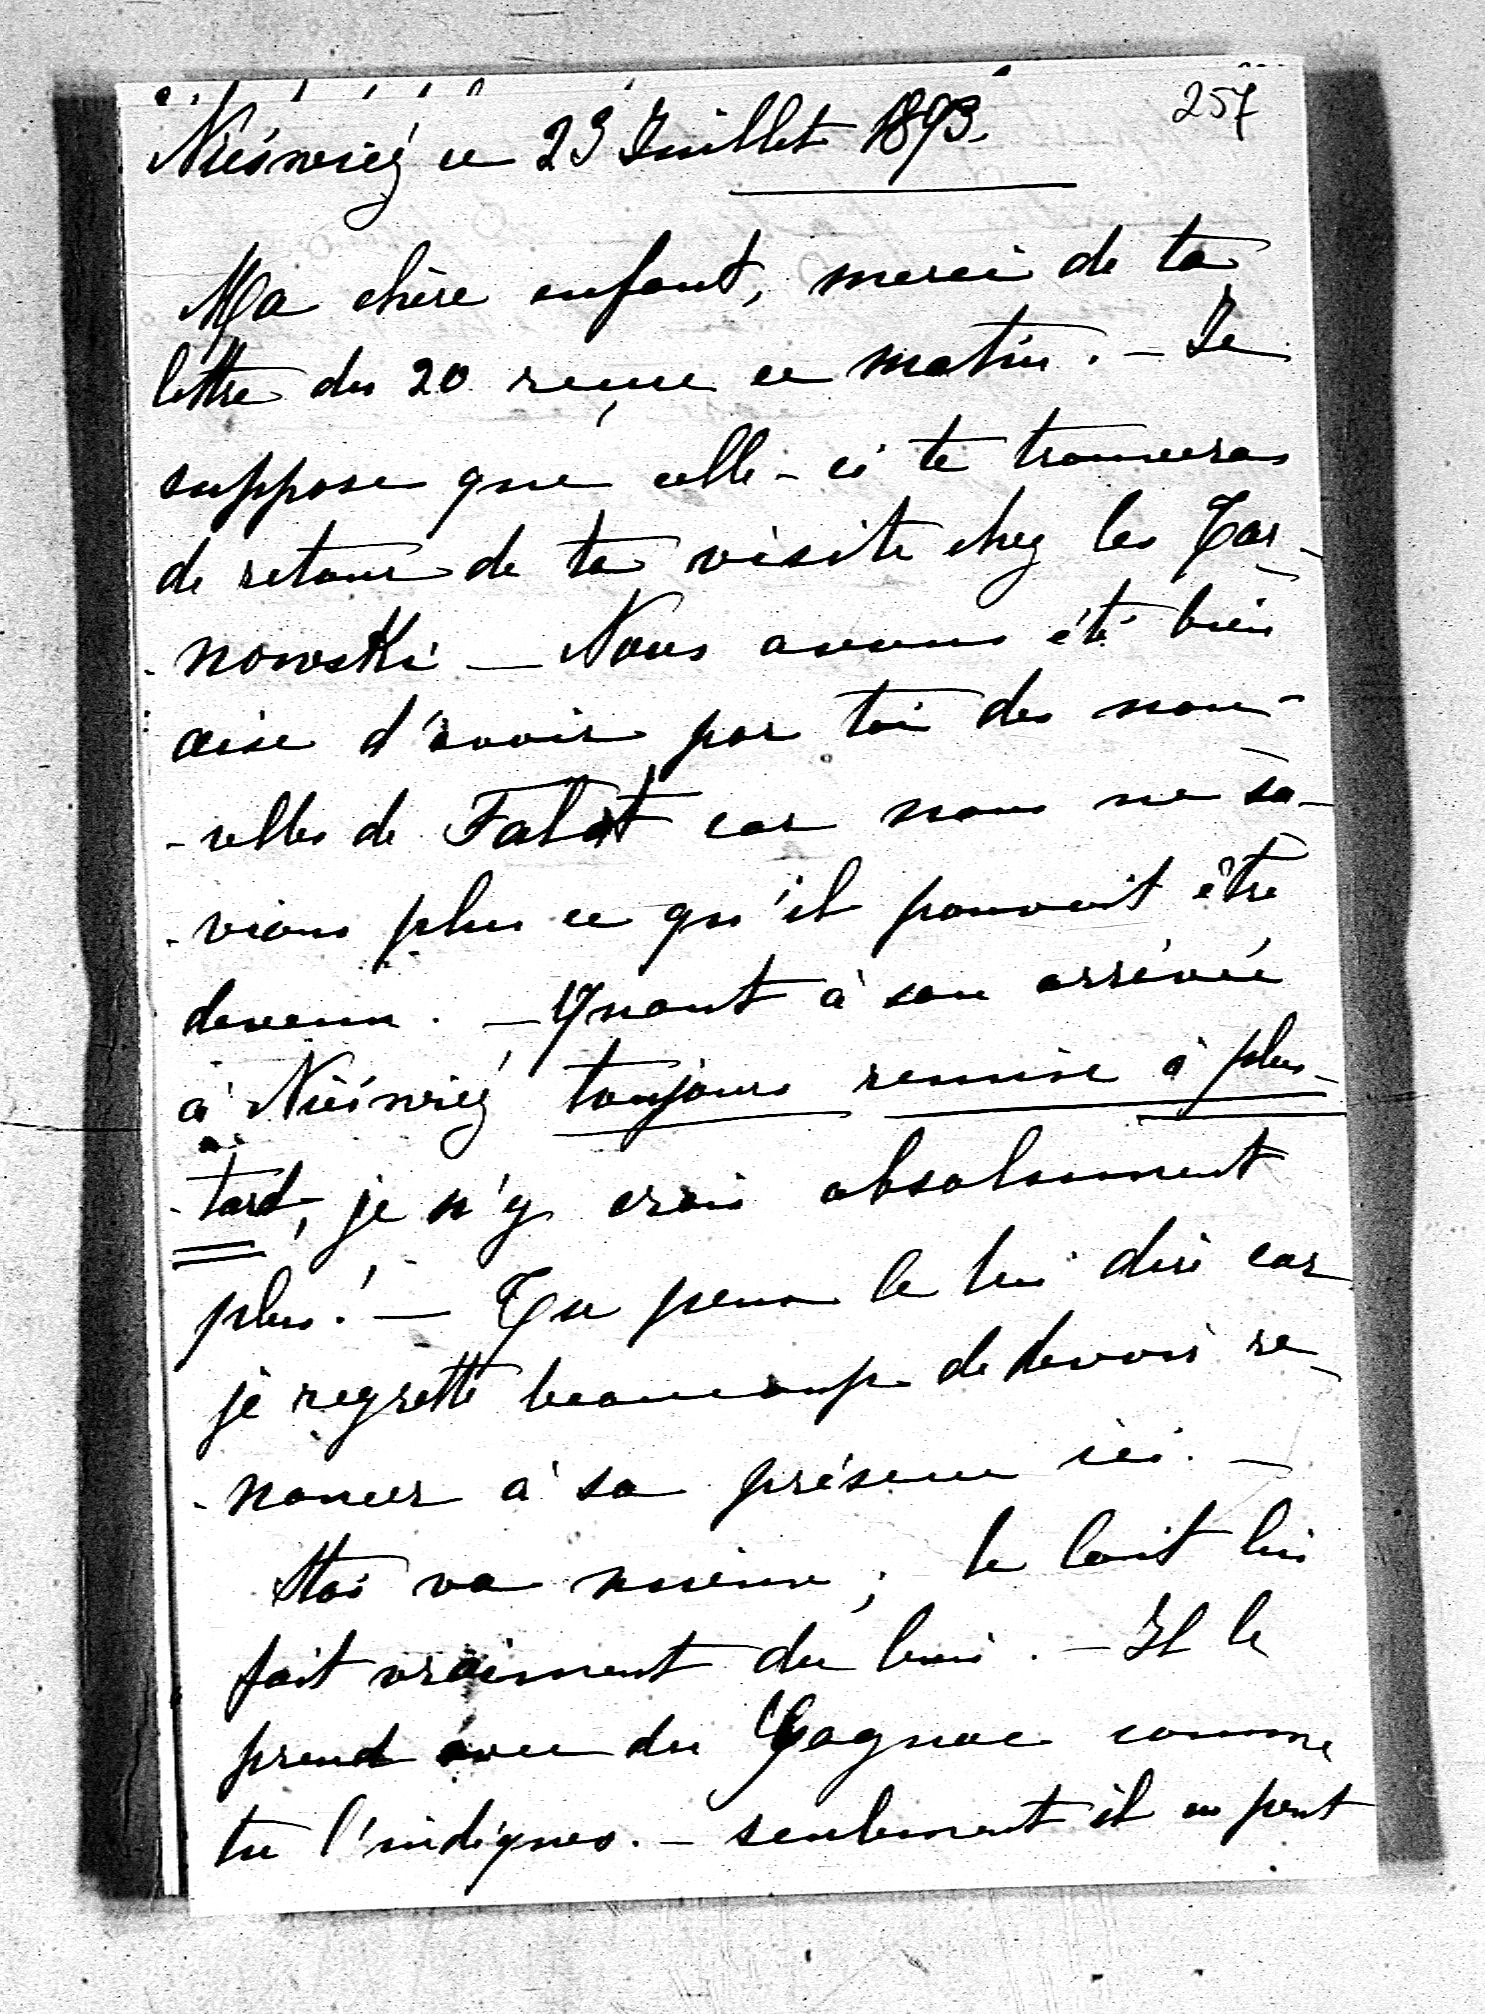 257
Nieśwież ce 23 Juillet 1893.
Ma chère enfant, merci de ta
lettre du 20 reçue ce matin. – Je
suppose que celle-ci te trouvera
de retour de ta visite chez les Tar-
-nowski – Nous avons été bien
aise d'avoir par toi des nou-
-velles de Fałat car nous ne sa-
-vions plus ce qu'il pouvait être
devenu. – Quant à son arrivée
à Nieśwież toujours remise à plus-
-tard, je n'y crois absolument
plus! – Tu peux le lui dire car
je regrette beaucoup de devoir re-
-noncer à sa présence ici. –
va mieux; le lait lui
fait vraiment du bien. – Il le
prend avec du Cognac comme
tu l'indiques. – seulement il ne peut